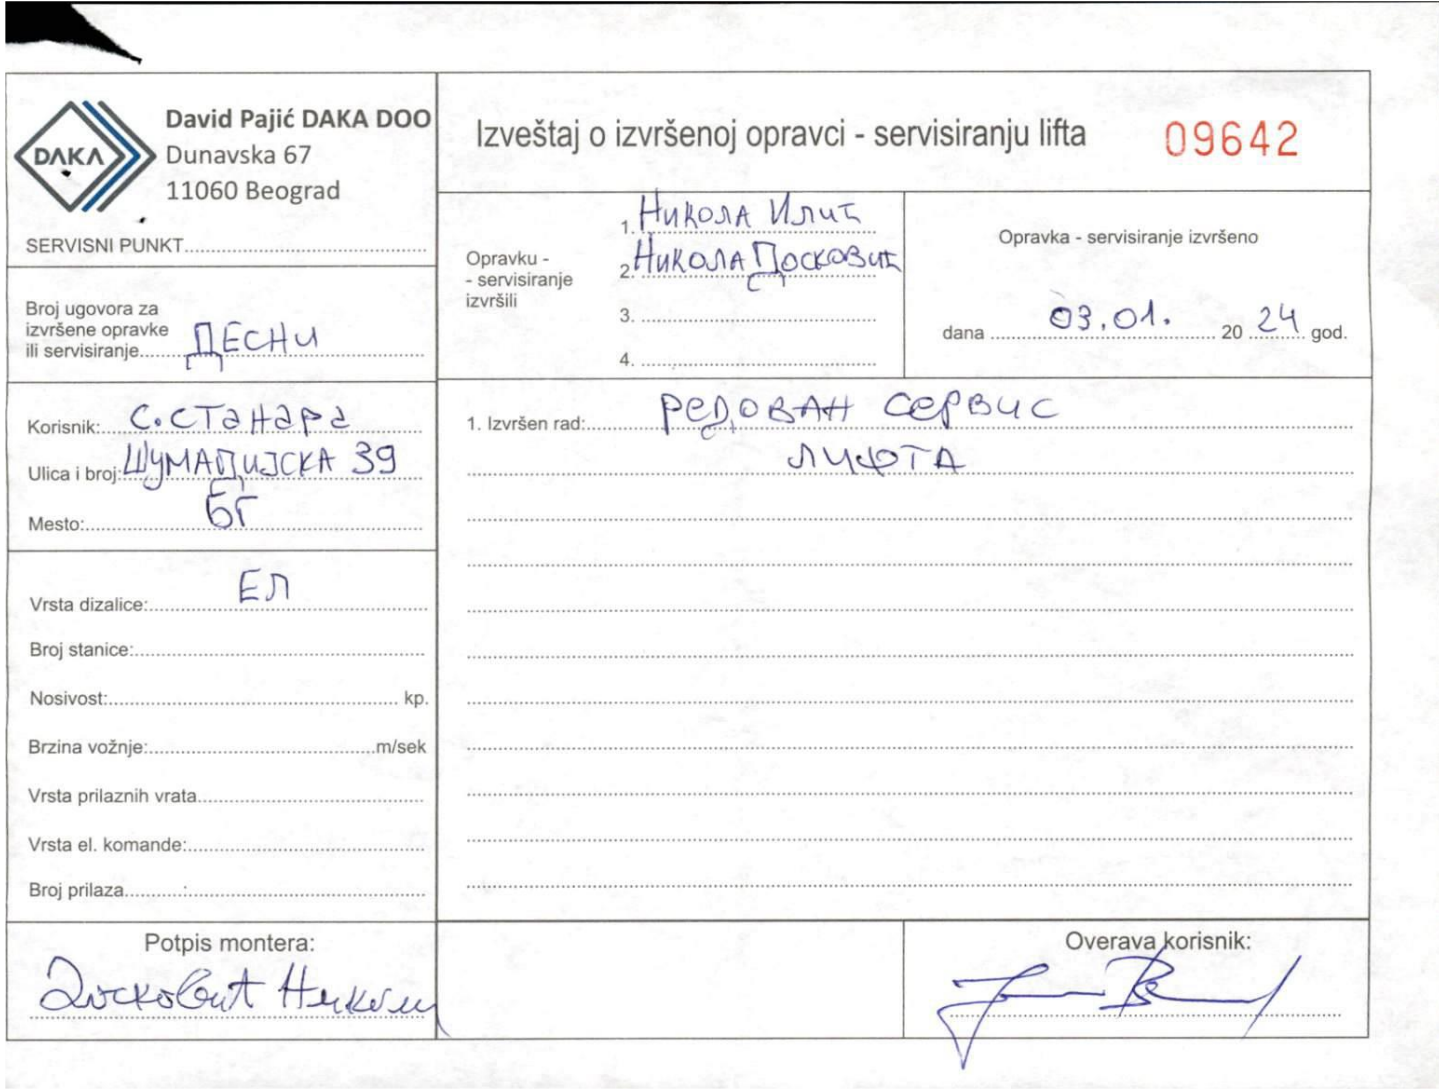 DAKA
David Pajić DAKA DOO
Dunavska 67
11060 Beograd
SERVISNI PUNKT
Izveštaj o izvršenoj opravci - servisiranju lifta 09642
Broj ugovora za
izvršene opravke
ili servisiranje ДЕСНИ
Opravku -
- servisiranje
izvršili
1. НИКОЛА ИЛИЋ
2. НИКОЛА ДОСКОВИЋ
3.
4.
Opravka - servisiranje izvršeno
dana 03.01. 20 24 god.
Korisnik: С.СТАНАРА
Ulica i broj: ШУМАДИЈСКА 39
Mesto: БГ
Vrsta dizalice: ЕЛ
Broj stanice:
Nosivost: kp.
Brzina vožnje: m/sek
Vrsta prilaznih vrata
Vrsta el. komande:
Broj prilaza
1. Izvršen rad: РЕДОВАН СЕРВИС
ЛИФТА
Potpis montera:
Досковић Никола
Overava korisnik: